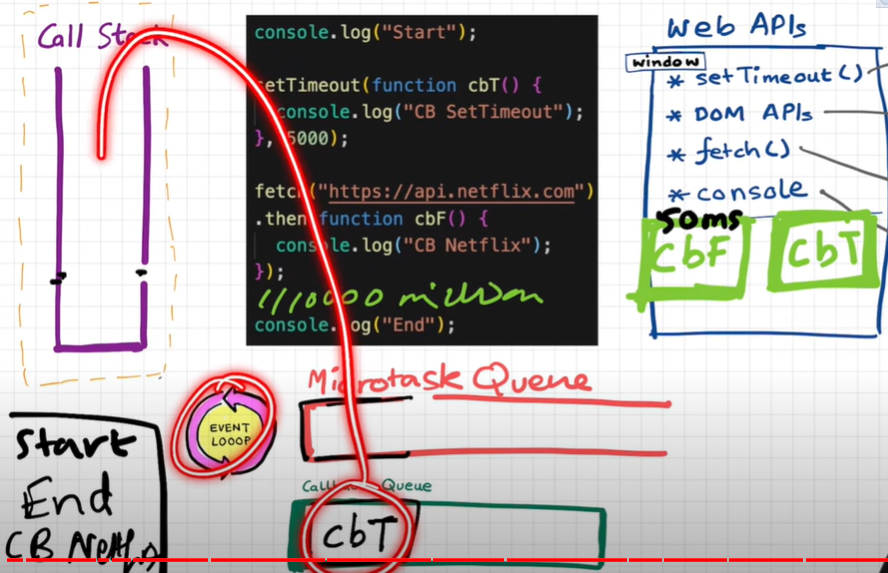 Call Stack
console.log("Start");
setTimeout(function cbT() {
console.log("CB SetTimeout");
}, 5000);
fetch("https://api.netflix.com")
.then function cbF() {
console.log("CB Netflix");
});
// 10000 million
console.log("End");
Web APIs
window
* setTimeout()
* DOM APIs
* fetch()
* console
50ms
CbF
CbT
Microtask Queue
EVENT
LOOOP
Callback Queue
cbT
Start
End
CB Netflix